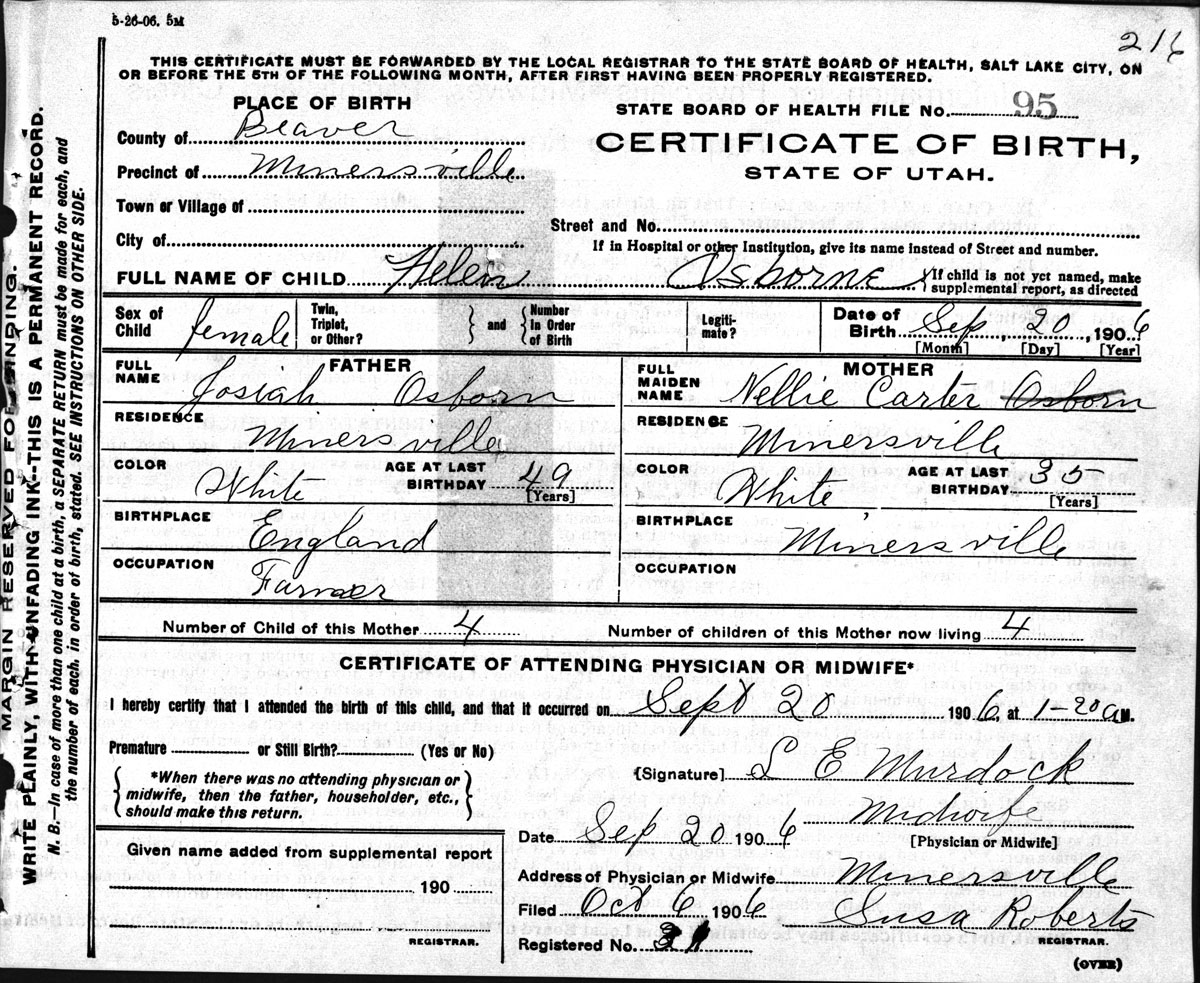 5-26-06. 5M
216
THIS CERTIFICATE MUST BE FORWARDED BY THE LOCAL REGISTRAR TO THE STATE BOARD OF HEALTH, SALT LAKE CITY, ON
OR BEFORE THE 5TH OF THE FOLLOWING MONTH, AFTER FIRST HAVING BEEN PROPERLY REGISTERED.
MARGIN RESERVED FOR BINDING.
WRITE PLAINLY, WITH UNFADING INK--THIS IS A PERMANENT RECORD.
N. B.—In case of more than one child at a birth, a SEPARATE RETURN must be made for each, and
the number of each, in order of birth, stated. SEE INSTRUCTIONS ON OTHER SIDE.
PLACE OF BIRTH
County of Beaver
Precinct of Minersville
Town or Village of
City of
STATE BOARD OF HEALTH FILE No. 95
CERTIFICATE OF BIRTH,
STATE OF UTAH.
Street and No.
If in Hospital or other Institution, give its name instead of Street and number.
FULL NAME OF CHILD Helen Osborne
{If child is not yet named, make
supplemental report, as directed
Sex of Child female
Twin, Triplet, or Other?
and
Number in Order of Birth
Legitimate?
Date of Birth Sep 20, 1906
[Month] [Day] [Year]
FATHER
FULL NAME Josiah Osborn
RESIDENCE Minersville
COLOR White AGE AT LAST BIRTHDAY 49
[Years]
BIRTHPLACE England
OCCUPATION Farmer
MOTHER
FULL MAIDEN NAME Nellie Carter Osborn
RESIDENCE Minersville
COLOR White AGE AT LAST BIRTHDAY 35
[Years]
BIRTHPLACE Minersville
OCCUPATION
Number of Child of this Mother 4 Number of children of this Mother now living 4
CERTIFICATE OF ATTENDING PHYSICIAN OR MIDWIFE*
I hereby certify that I attended the birth of this child, and that it occurred on Sept 20 1906, at 1-20 a M.
Premature or Still Birth? (Yes or No)
{*When there was no attending physician or
midwife, then the father, householder, etc.,
should make this return.}
[Signature] L E Murdock
Midwife
[Physician or Midwife]
Date Sep 20 1906
Given name added from supplemental report
190
REGISTRAR.
Address of Physician or Midwife Minersville
Filed Oct 6 1906 Susa Roberts
REGISTRAR.
Registered No.
(OVER)